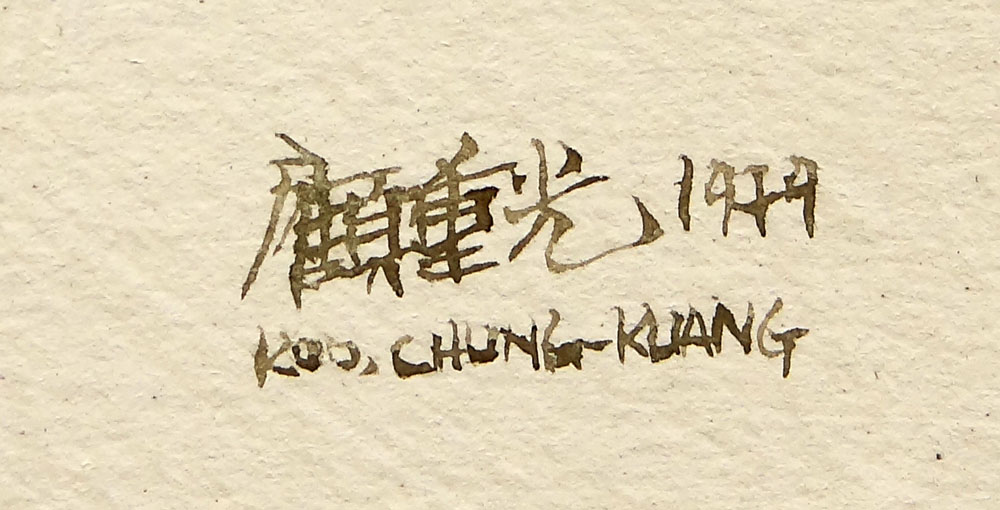 顧重光 1979
KOO, CHUNG-KUANG